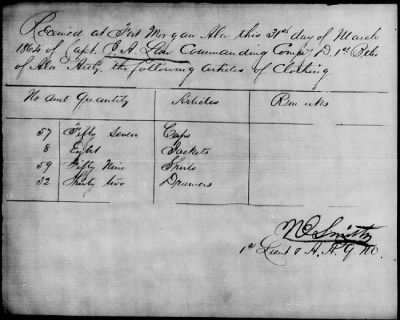 Received at Fort Morgan Ala this 31st day of March
1864 of Capt. J. A. Law Commanding Comp'y D. 1st Btn
of Ala Arty. the following articles of Clothing
No and Quantity Articles Remarks
57 Fifty Seven Caps
8 Eight Jackets
59 Fifty Nine Shirts
32 Thirty two Drawers
Smith
1st Lieut & A. A. Q. M.